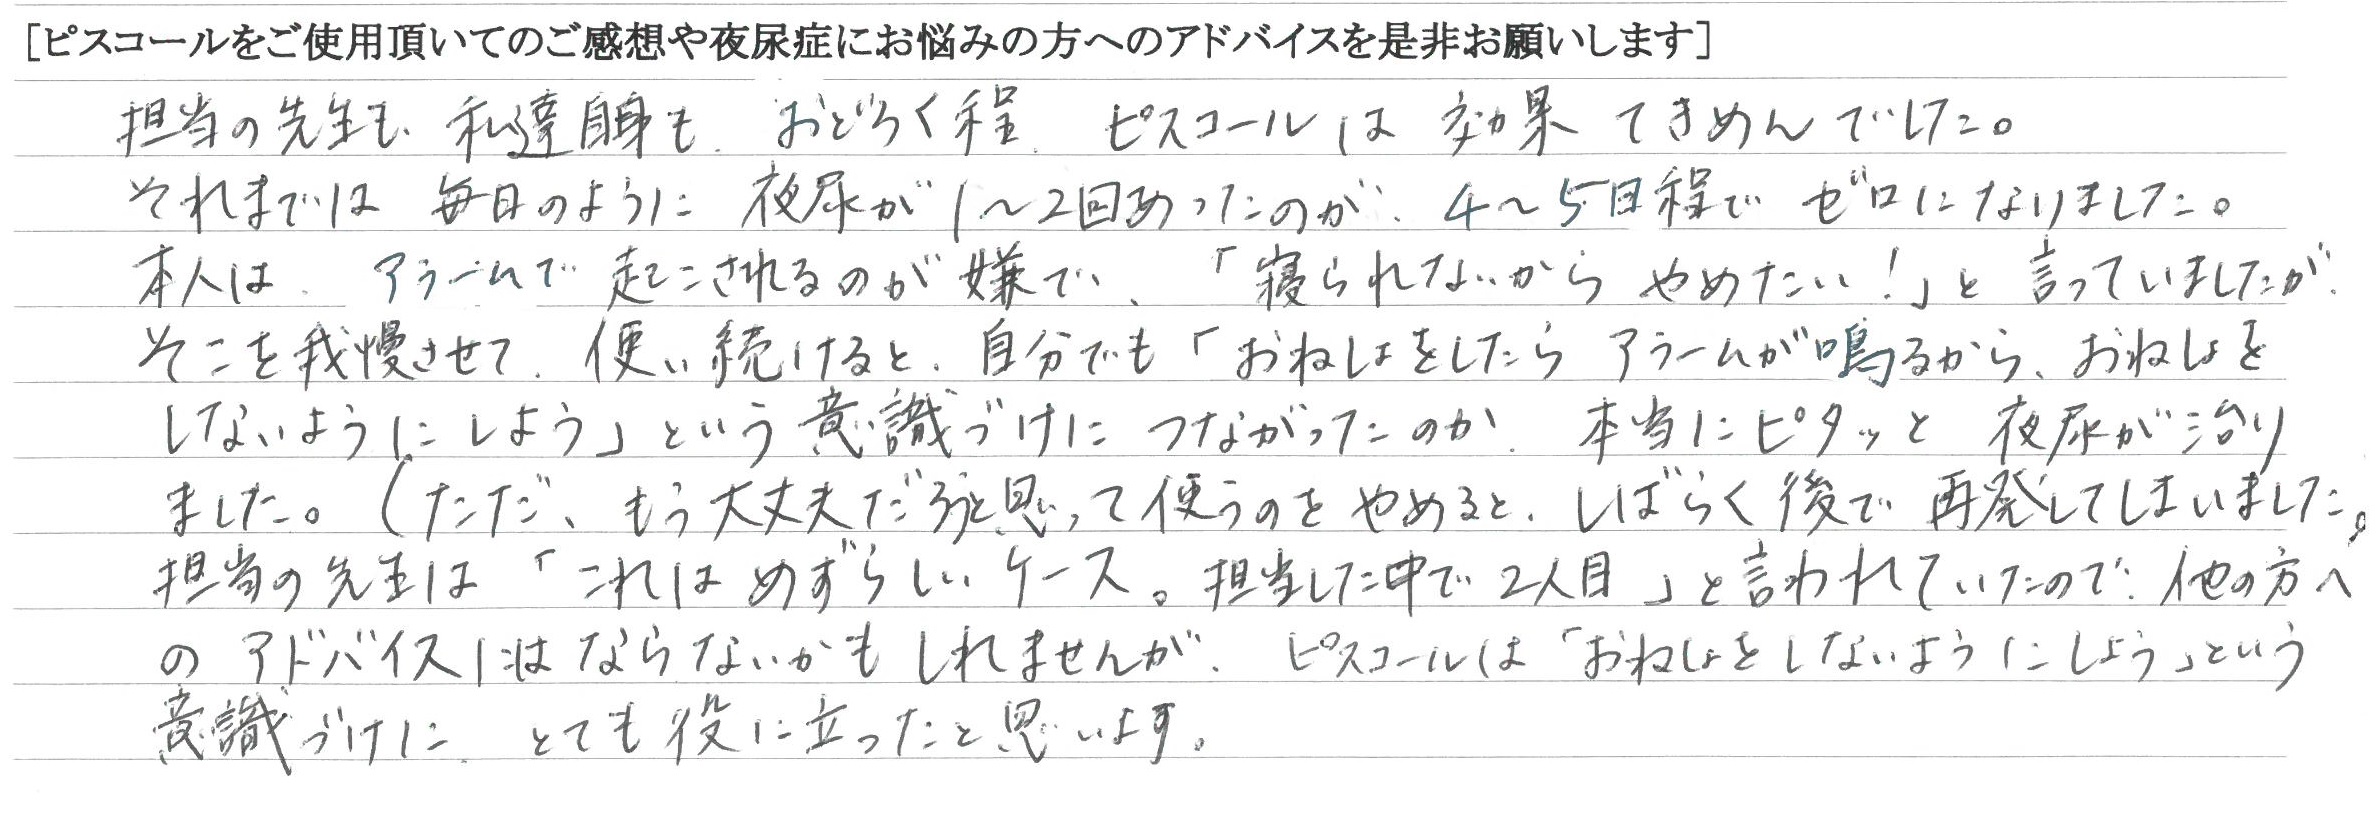 [ピスコールをご使用頂いてのご感想や夜尿症にお悩みの方へのアドバイスを是非お願いします]
担当の先生も、私達自身も、おどろく程、ピスコールは効果てきめんでした。
それまでは毎日のように夜尿が1〜2回あったのが、4〜5日程でゼロになりました。
本人は、アラームで起こされるのが嫌で、「寝られないからやめたい!」と言っていましたが、
そこを我慢させて、使い続けると、自分でも「おねしょをしたらアラームが鳴るから、おねしょを
しないようにしよう」という意識づけにつながったのか、本当にピタッと夜尿が治り
ました。(ただ、もう大丈夫だろうと思って使うのをやめると、しばらく後で再発してしまいました。
担当の先生は「これはめずらしいケース。担当した中で2人目」と言われていたので、他の方へ
のアドバイスにはならないかもしれませんが、ピスコールは「おねしょをしないようにしよう」という
意識づけに、とても役に立ったと思います。